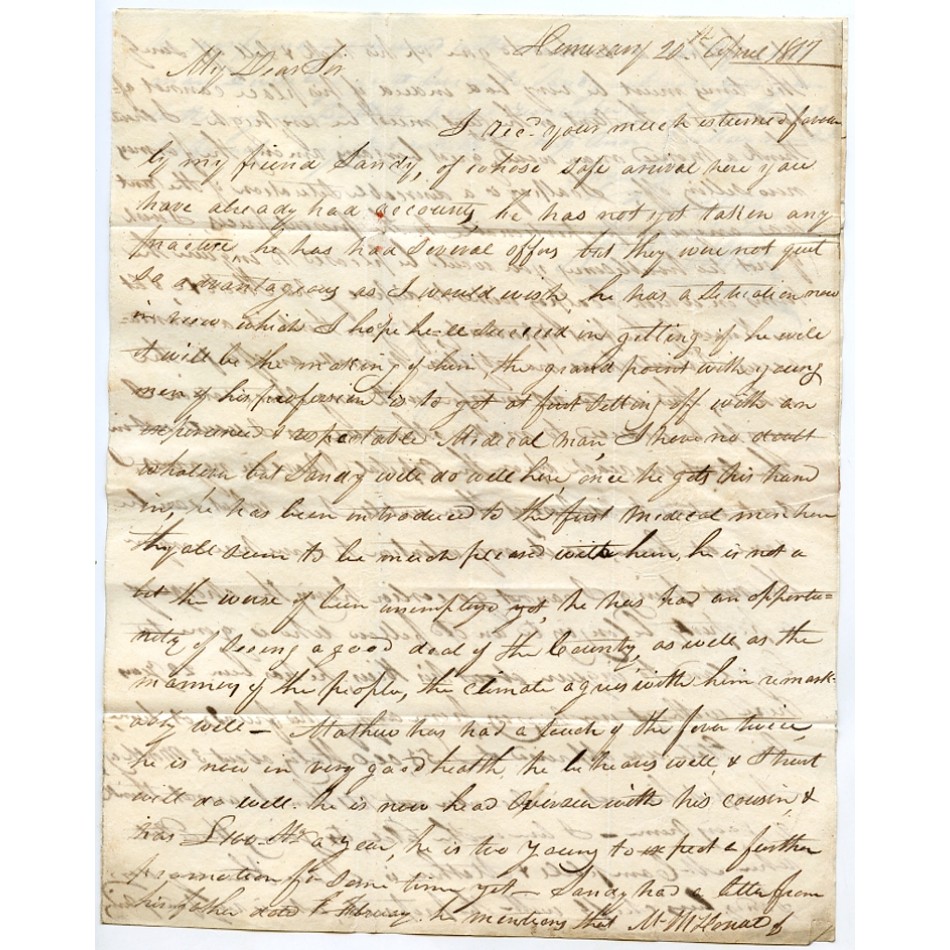 20th April 1817
My Dear Sir
I recd. your much esteemed favour
by my friend Sandy, of whose safe arrival here you
have already had accounts, he has not yet taken any
practise, he has had several offers but they were not quit
so advantageous as I would wish, he has a Situation now
in view which I hope he-ll succeed in getting if he will
it will be the making of him, the grand point with young
men of his profession is to get at first setting off with an
experienced & respectable Medical man, I have no doubt
whatever but Sandy will do well here once he gets his hand
in, he has been introduced to the first Medical men here
they all seem to be much pleased with him, he is not a
bit the worse of been unemployd yet, he has had an opportu=
nity of seeing a good deal of the Country, as well as the
manners of the people, the climate agrees with him remark-
ably well – Mathew has had a touch of the fever twice,
he is now in very good health, he behaves well, & I trust
will do well. he is now head Overseer with his cousin, &
has £100 a year, he is too young to expect a further
promotion for some time yet – Sandy had a letter from
his father dated February he mentions that Mr